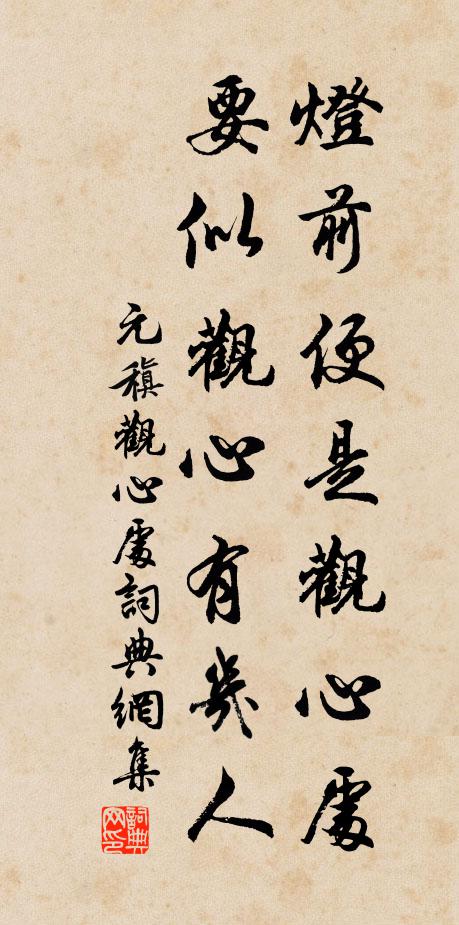 燈前便是觀心處
要似觀心有幾人
元稹觀心處詞典網集
詞典網印